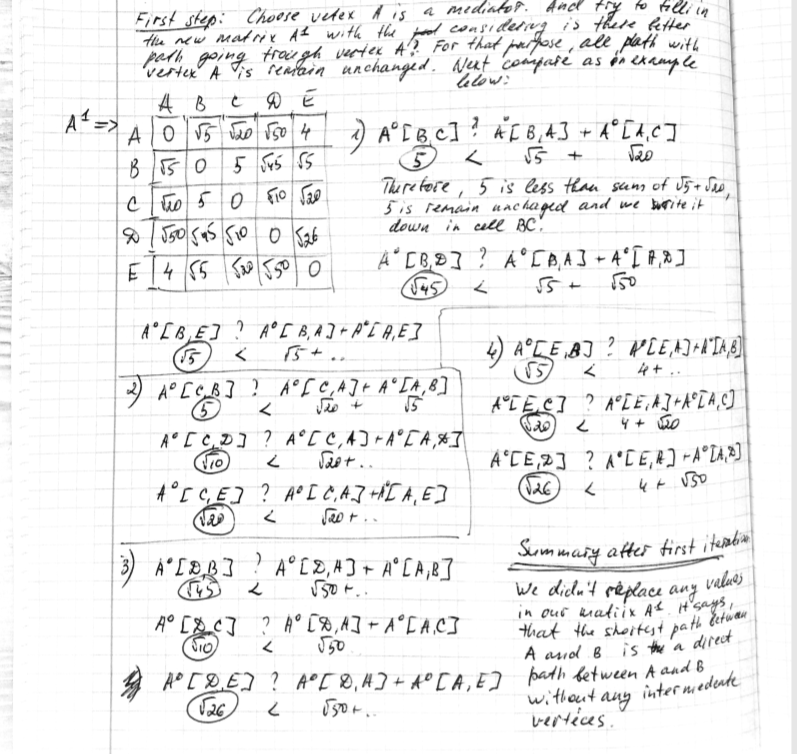 First step: Choose vetex A is a mediator. And try to fill in
the new matrix A¹ with the considering is there better
path going trough vertex A? For that purpose, all path with
vertex A is remain unchanged. Next compare as an example
below:
A¹ =>
A B C D E
A 0 √5 √20 √50 4
B √5 0 5 √45 √5
C √20 5 0 √10 √20
D √50 √45 √10 0 √26
E 4 √5 √20 √50 0
1) A⁰[B,C] ? A⁰[B,A] + A⁰[A,C]
5 < √5 + √20
Therefore, 5 is less than sum of √5+√20,
5 is remain unchaged and we write it
down in cell BC.
A⁰[B,D] ? A⁰[B,A] + A⁰[A,D]
√45 < √5 + √50
A⁰[B,E] ? A⁰[B,A]+A⁰[A,E]
√5 < √5 + ..
2) A⁰[C,B] ? A⁰[C,A]+ A⁰[A,B]
5 < √20 + √5
A⁰[C,D] ? A⁰[C,A]+A⁰[A,D]
√10 < √20+ ..
A⁰[C,E] ? A⁰[C,A]+A⁰[A,E]
√20 < √20+ ..
3) A⁰[D,B] ? A⁰[D,A]+ A⁰[A,B]
√45 < √50+ ..
A⁰[D,C] ? A⁰[D,A]+A⁰[A,C]
√10 < √50
A⁰[D,E] ? A⁰[D,A]+A⁰[A,E]
√26 < √50+ ..
4) A⁰[E,B] ? A⁰[E,A]+A⁰[A,B]
√5 < 4+ ..
A⁰[E,C] ? A⁰[E,A]+A⁰[A,C]
√20 < 4+ √20
A⁰[E,D] ? A⁰[E,A]+A⁰[A,D]
√26 < 4+ √50
Summary after first iteration
We didn't replace any values
in our matrix A¹. It says,
that the shortest path between
A and B is a direct
path between A and B
without any intermedente
vertéces.